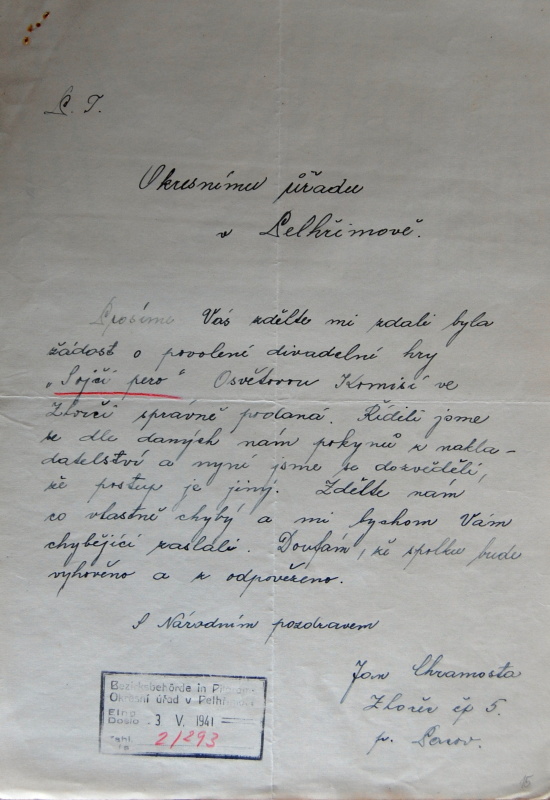 P. T.
Okresnímu úřadu
v Pelhřimově.
Prosíme Vás zdělte mi zdali byla
žádost o povolení divadelné hry
„Sojčí pero" Osvětovou Komisí ve
Zlorči správně podaná. Řídili jsme
se dle daných nám pokynů z nakla-
datelství a nyní jsme se dozvěděli,
že postup je jiný. Zdělte nám
co vlastně chybý a mi bychom Vám
chybějící zaslali. Doufám, že spolku bude
vyhověno a z odpověženo.
S Národním pozdravem
Jan Chramosta
čp 5.
p.
Bezirksbehörde in
Okresní úřad v
Došlo 3 V. 1941
2/293